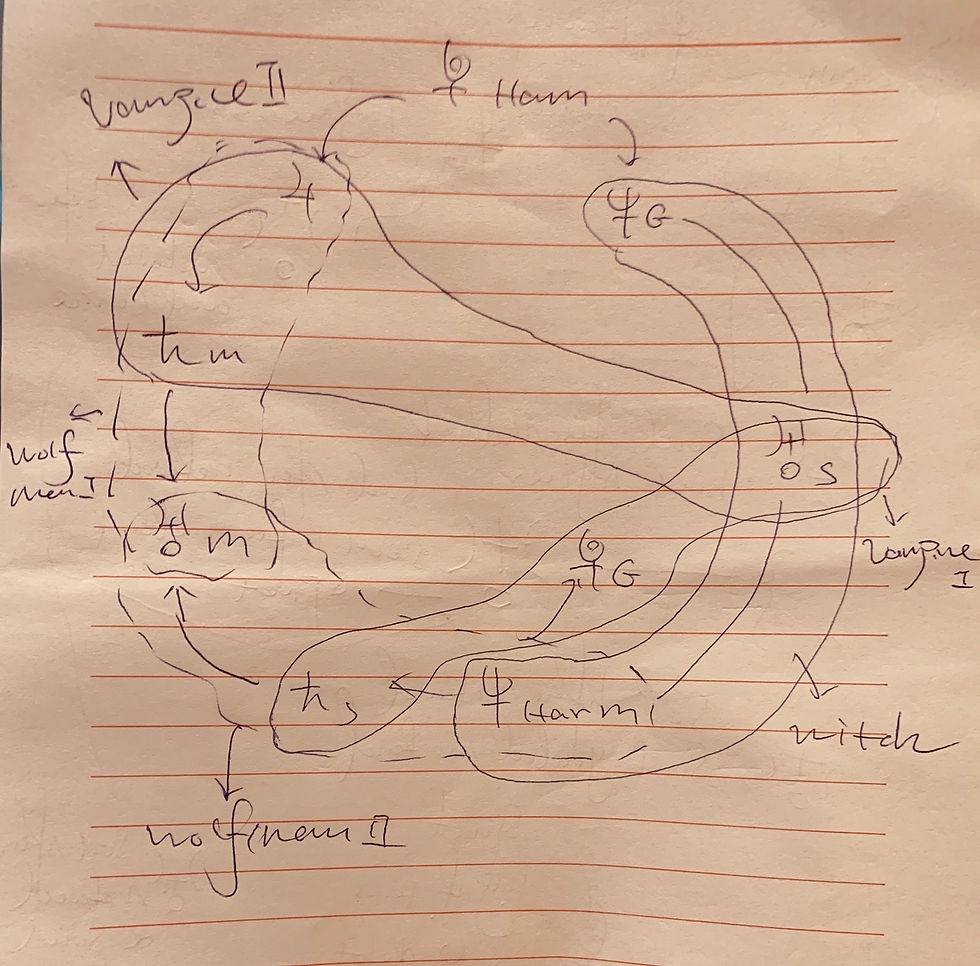 Vampire II
♀ Ham
♃
♆ G
ħ m
♅ s
Wolf
men I
♅ m
♀ G
Vampire
I
ħ s
♆ Harmi
witch
wolfmen II